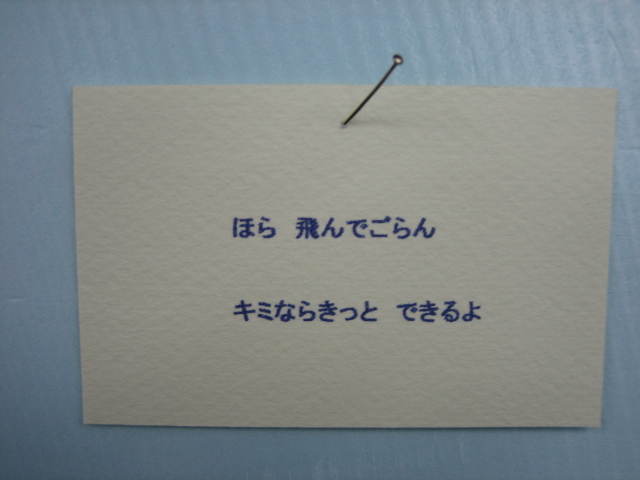 ほら　飛んでごらん
キミならきっと　できるよ